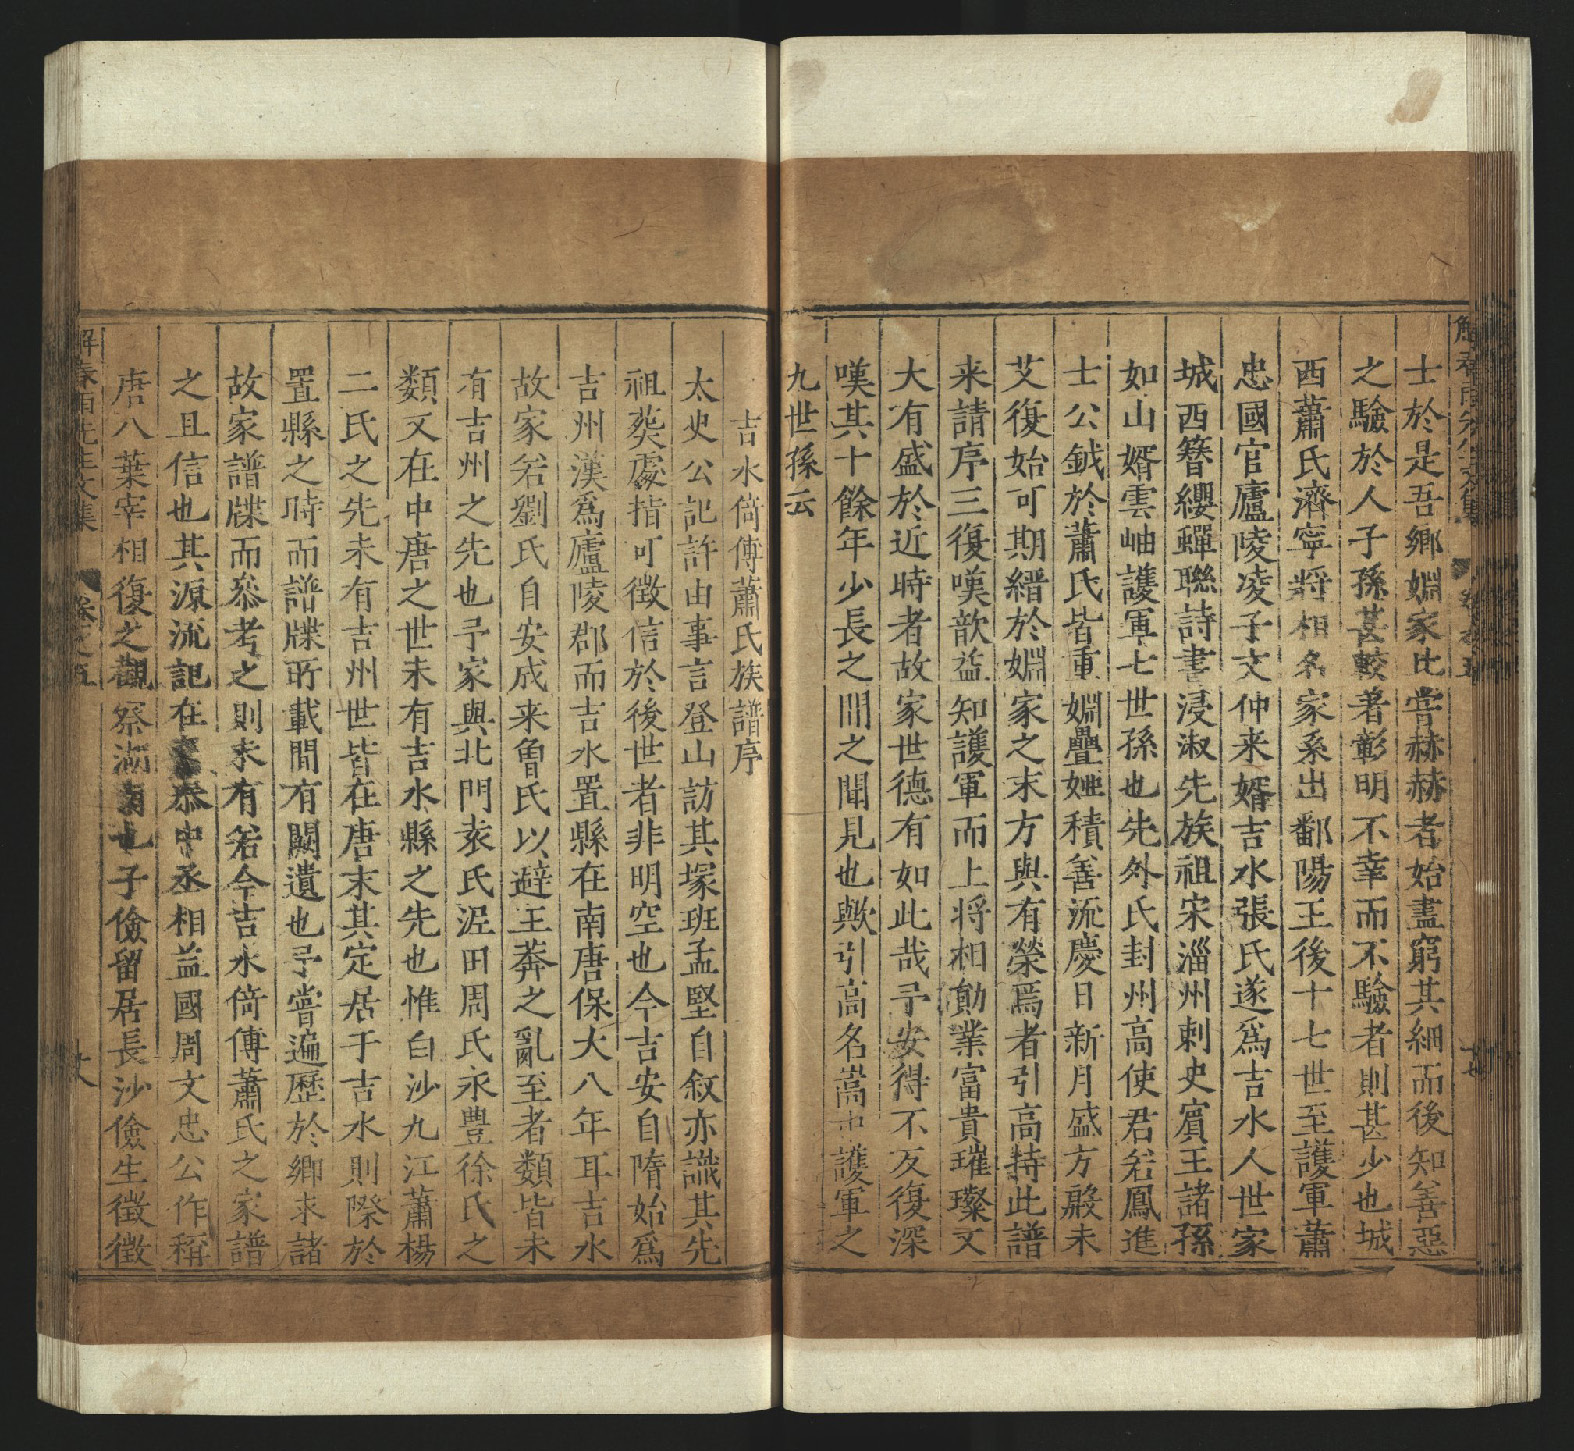 士於是吾鄉姻家比嘗赫赫者始盡窮其細而後知善惡
之驗於人子孫甚較著彰明不幸而不驗者則甚少也城
西蕭氏濟寧將相名家系出鄱陽王後十七世至護軍蕭
忠國官廬陵凌子文仲来婿吉水張氏遂爲吉水人世家
城西簪纓蟬聯詩書浸淑先族祖宋淄州刺史賔王諸孫
如山婿雲岫護軍七世孫也先外氏封州高使君若鳳進
士公鉞於蕭氏皆重姻疊娅積善流慶日新月盛方殷未
艾復始可期縉於姻家之末方與有榮焉者引高持此譜
来請序三復嘆歆益知護軍而上将相勛業富貴璀璨又
大有盛於近時者故家世德有如此哉予安得不反復深
嘆其十餘年少長之間之聞見也歟引高名嵩護軍之
九世孫云
吉水倚傳蕭氏族譜序
太史公記許由事言登山訪其塚班孟堅自敘亦識其先
祖葬處措可徵信於後世者非明空也今吉安自隋始爲
吉州漢爲廬陵郡而吉水置縣在南唐保大八年耳吉水
故家若劉氏自安成来魯氏以避王莽之亂至者類皆未
有吉州之先也予家與北門袁氏泥田周氏永豊徐氏之
類又在中唐之世未有吉水縣之先也惟白沙九江蕭楊
二氏之先未有吉州世皆在唐末其定居于吉水則際於
置縣之時而譜牒所載間有闕遺也予嘗遍歷於鄉求諸
故家譜牒而叅考之則未有若今吉水倚傳蕭氏之家譜
之且信也其源流記在叅中丞相益國周文忠公作稱
唐八葉宰相復之觀察湖南也子儉留居長沙儉生徵徵
解春雨先生文集
卷之五
十八